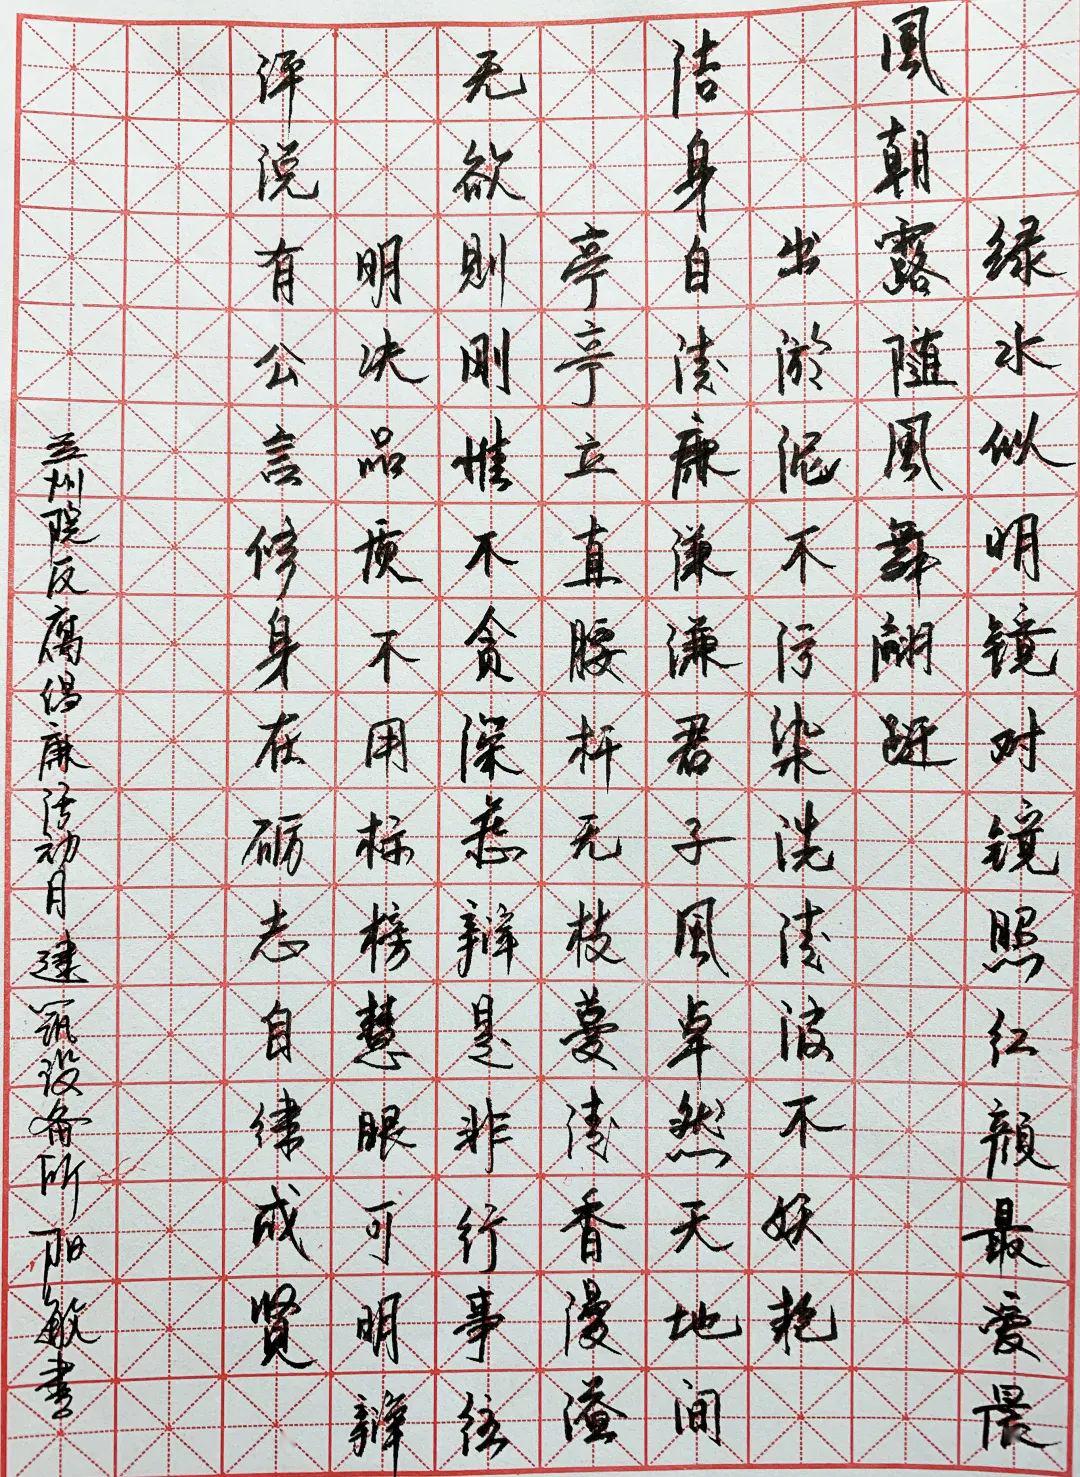 绿水似明镜对镜照红颜最爱晨
風朝露随風舞翩跹
出淤泥不污染洗清波不妖艳
洁身自清廉谦谦君子風卓然天地间
亭亭立直腰杆无枝蔓清香漫溢
无欲則刚惟不贪深辨是非行事任
明决品质不用标榜慧眼可明辨
评说有公言修身在砺志自律成贤
兰州院反腐倡廉活动月 建筑设备所 阳敏书